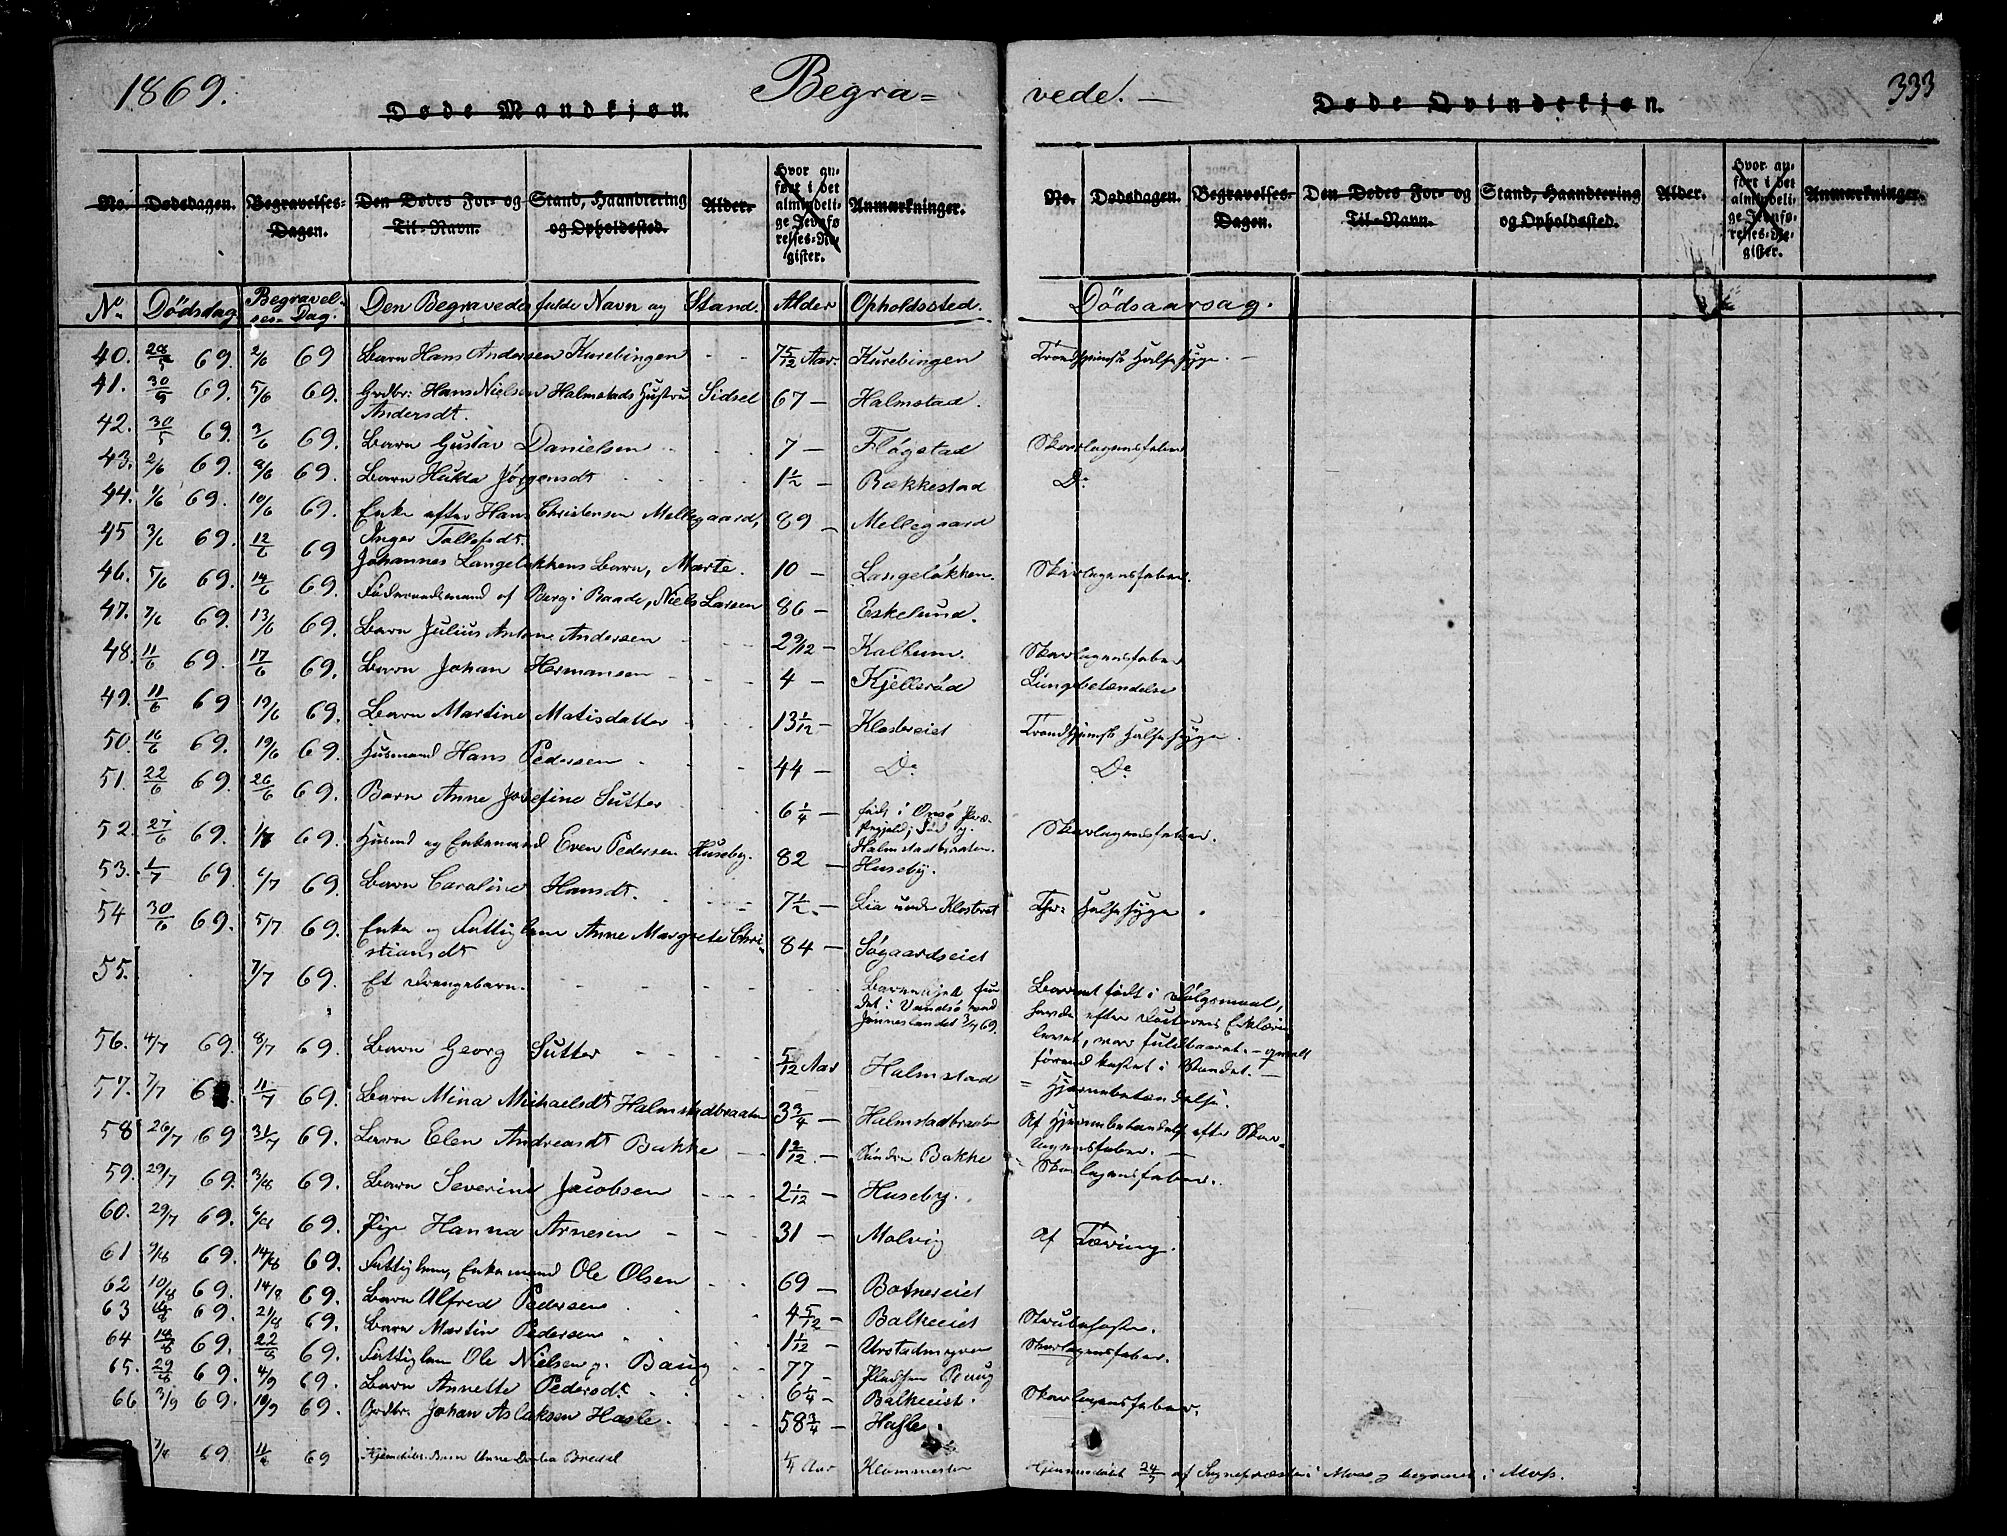 1869. Begra= vede. — 333
Døde Mandkjøn. Døde Qvindekjøn.
No. Dødsdagen. Begravelses-Dagen. Den Dødes For- og Til-Navn. Stand, Haandtering og Opholdssted. Alder. Hvor anført i det almindelige Jevnførelses-Register. Anmærkninger.
No. Dødsdagen. Begravelses-Dagen. Den Dødes For- og Til-Navn. Stand, Haandtering og Opholdssted. Alder. Hvor anført i det almindelige Jevnførelses-Register. Anmærkninger.
No Dødsdag Begravelses-Dag. Den Begravedes fulde Navn og Stand. Alder Opholdssted. Dødsaarsag.
40. 28/5 69. 2/6 69 Barn Hans Andersen Kurebingen 7 5/12 Aar. Kurebingen Trondhjemsk Halssyge. —
41. 30/5 69. 5/6 69. Grdbr: Hans Nielsen Halmstads Hustru Sidsel Andersdt. 67 — Halmstad.
42. 30/5 69. 3/6 69. Barn Gustav Danielsen 7 — Fløgstad Skarlagensfeber
43. 2/6 69. 8/6 69. Barn Hulda Jørgensdt 1 1/2 — Bækkestad Do
44. 1/6 69. 10/6 69. Enke efter Hans Christensen Mellegaard, Inger Tollefsdt. 89 — Mellegaard
45 3/6 69. 12/6 69 Johannes Langeløkkens Barn, Marte. 10 — Langeløkken. Skarlagensfeber.
46. 5/6 69. 14/6 69. Føderaadsmand af Berg i Raade, Niels Larsen 86 — Eskelund.
47. 7/6 69. 13/6 69. Barn Julius Anton Andersen 2 9/12 — Kalkum. Skarlagensfeber
48. 11/6 69. 17/6 69. Barn Johan Hermansen 4 — Kjellerød Lungebetændelse
49. 11/6 69 19/6 69. Barn Martine Matisdatter 13 1/12 — Klostereiet Trondhjemsk Halssyge.
50. 16/6 69. 19/6 69. Husmand Hans Pedersen 44 — Do Do
51. 22/6 69. 26/6 69. Barn Anne Josefine Sutter 6 1/4 — født i Onsø Præstegjeld, Halmstadbraaten. Skarlagensfeber.
52. 27/6 69. 1/7 69. Husmd og Enkemand Even Pedersen Huseby. 82 — Huseby.
53. 1/7 69. 6/7 69. Barn Caroline Hansdt. 7 1/2 — Lia under Klosteret Thr: Halssyge.
54 30/6 69. 5/7 69. Enke og Fattiglem Anne Margrete Christiansdt 84 — Søgaardseiet
55. 7/7 69. Et Drengebarn. Barneliget fundet i Vandsø ved Jonneslandet 3/7 69. Barnet født i Dølgsmaal, havde efter Doctorens Erklæring levet, var fuldbaaret — qvalt førend kastet i Vandet. —
56. 4/7 69. 8/7 69. Barn Georg Sutter 5/12 Aar Halmstad — Hjernebetændelse.
57. 7/7 69 11/7 69. Barn Mina Michaelsdt Halmstadbraaten 3 3/4 — Halmstadbraaten Af Hjernebetændelse efter Skarlagensfeber. —
58 26/7 69 31/7 69. Barn Elen Andreasdt Bakke 1 9/12 — Søndre Bakke — Skarlagensfeber.
59. 29/7 69. 3/8 69. Barn Severine Jacobsen 2 1/12 — Huseby.
60. 29/7 69. 6/8 69. Pige Hanna Arnesen 31 — Molvig Af Tæring.
61 9/8 69. 14/8 69. Fattiglem, Enkemand Ole Olsen 69 — Botnereiet
62 10/8 69. 14/8 69. Barn Alfred Pedersen 4 5/12 — Balkeeiet Strubehoste.
63 16/8 69. 21/8 69. Barn Martin Pedersen 1 1/12 — Urstadmyren Skarlagensfeber.
64 18/8 69. 22/8 69. Fattiglem Ole Nielsen p. Baug 77 — Pladsen Baug
65. 29/8 69. 4/9 69. Barn Annette Pedersdt 6 1/4 — Balkeeiet. Skarlagensfeber.
66 3/9 69. 10/9 69. Grdbr. Johan Aslaksen Hasle. 58 3/4 — Hasle.
7/8 69. 11/8 69 Hjemdøbt Barn Anne Dorthea Bredal 1/4 Aar Klommesten Hjemmedøbt 24/7 af Sognepræsten i Moss, begravet i Moss.